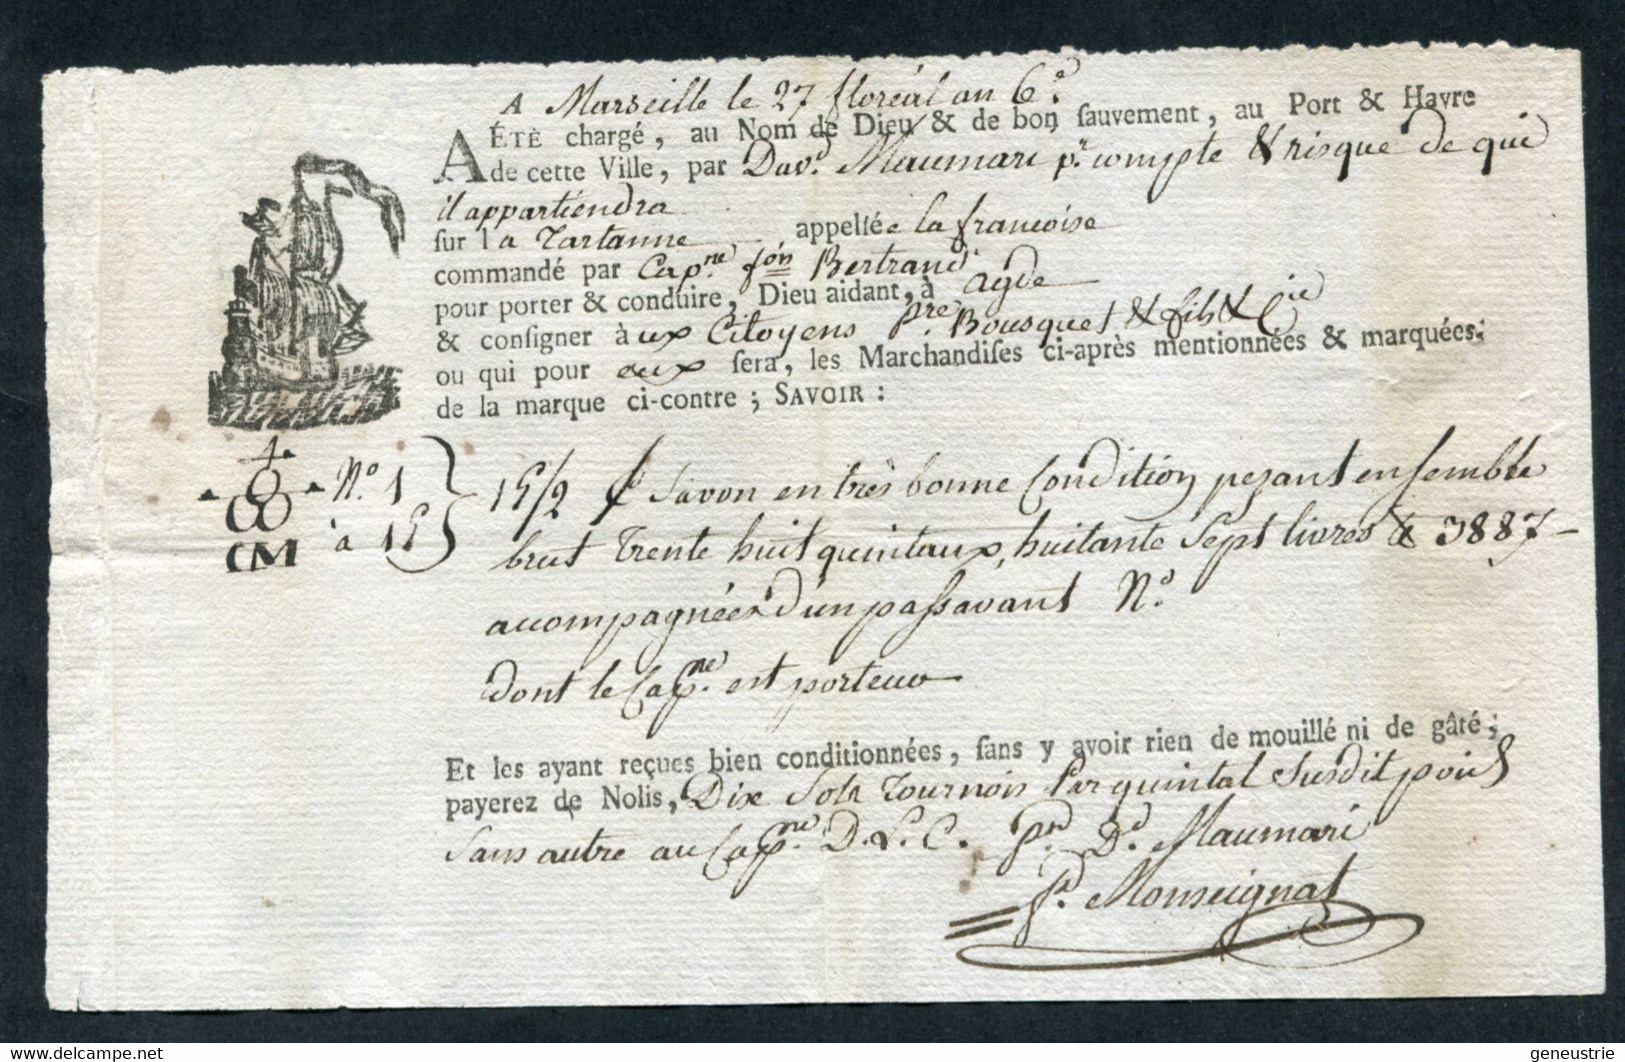 A Marseille le 27 floréal an 6.e
A ÉTÉ chargé, au Nom de Dieu & de bon ſauvement, au Port & Havre
de cette Ville, par Dav.d Maumari p.r compte & risque de qui
il appartiendra
ſur la Tartanne appellée la francoise
commandé par Cap.ne Bertrand
pour porter & conduire, Dieu aidant, à Agde
& conſigner à ux Citoyens p.re Bousquet & fils & C.ie
ou qui pour eux ſera, les Marchandiſes ci-après mentionnées & marquées;
de la marque ci-contre; SAVOIR:
N.o 1
à 15
CM
15/2 Savon en très bonne Condition pezant ensemble
brut Trente huit quintaux, huitante Sept livres 3887-
accompagnées d'un passavant N.o
dont le Cap.ne est porteur
Et les ayant reçues bien conditionnées, ſans y avoir rien de mouillé ni de gâté;
payerez de Nolis, Dix Sols Tournois Par quintal Susdit poids
Sans autre au Cap.ne D. L. C. P.re D.d Maumari
P. Monseignat
geneustrie